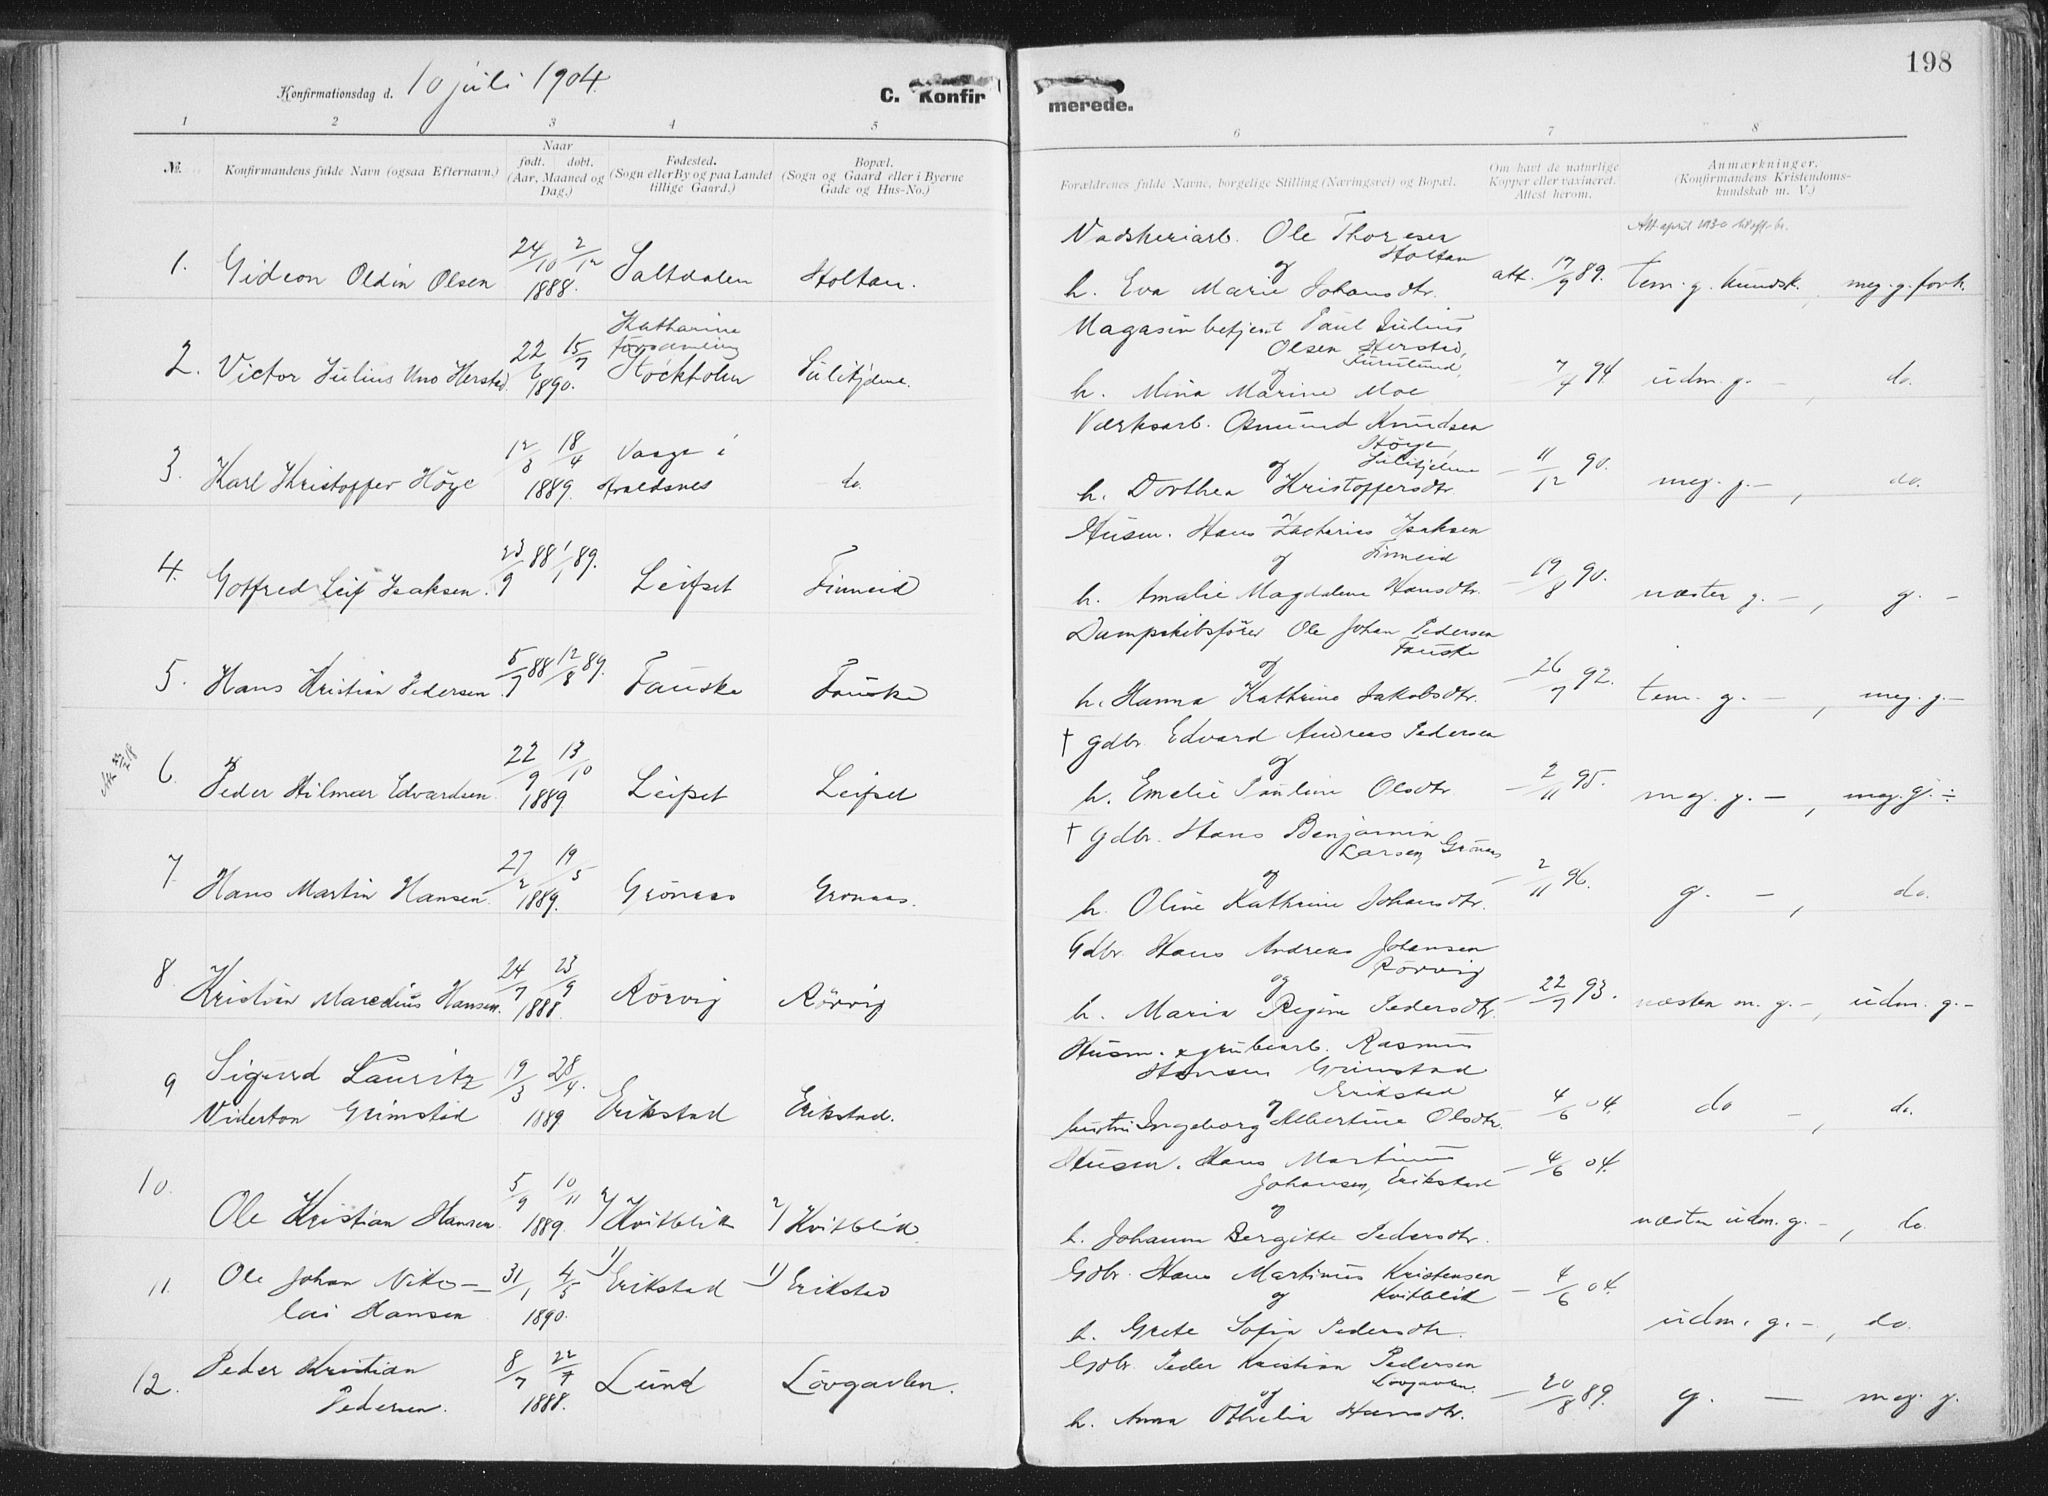 198
Konfirmationsdag d. 10 juli 1904.
C. Konfirmerede.
1 2 3 4 5 6 7 8
№. Konfirmandens fulde Navn (ogsaa Efternavn.) Naar født. døbt. (Aar, Maaned og Dag.) Fødested. (Sogn eller By og paa Landet tillige Gaard.) Bopæl. (Sogn og Gaard eller i Byerne Gade og Hus-No.) Forældrenes fulde Navne, borgelige Stilling (Næringsvei) og Bopæl. Om havt de naturlige Kopper eller vaxineret. Attest herom. Anmærkninger. (Konfirmandens Kristendomskundskab m. V.)
Att. april 1930
Ole Thoresen
Holtan
1. Gideon Oldin Olsen 24/10 2/12 1888. Saltdalen Holtan. og h. Eva Marie Johansdtr. att. 17/9 89. tem. g. kundsk., meg. g. forh.
Magasinbetjent Paul Julius
Katharina
Olsen Herstad,
Furulund,
2. Victor Julius Uno Herstad 22/2 15/7 1890. Stockholm Sulitjelma. og h. Mina Marine Moe – 7/4 94. udm. g. –, do.
Værksarb. Osmund Knudsen
Høye,
Sulitjelma
3. Karl Kristoffer Höye 12/3 18/4 1889. Vaage i Haldsnes do. og h. Dorthea Kristoffersdtr. – 11/12 90. meg. g. –, do.
Husm. Hans Zacharias Isaksen
Finneid
4. Gotfred Leif Isaksen. 23/9 88 1/1 89. Leifset Finneid og h. Amalie Magdalene Hansdtr. – 19/8 90. næsten g. –, g. –
Dampskibsfører Ole Johan Pedersen
Fauske
5. Hans Kristian Pedersen. 5/7 88 12/8 89. Fauske Fauske og h. Hanna Kathrine Jakobsdtr. – 26/7 92. tem. g. –, meg. g. –
† Gdbr. Edvard Andreas Pedersen
6. Peder Hilmar Edvardsen 22/9 13/10 1889 Leifset Leifset og h. Emelie Pauline Olsdtr. – 2/11 95. meg. g. –, meg. g. –
† Gdbr. Hans Benjamin
Larsen, Grönaas
7. Hans Martin Hansen. 27/2 19/5 1889. Grönaas Grönaas. og h. Oline Kathrine Johansdtr. – 2/11 96. g. –, do.
Gdbr. Hans Andreas Johansen
Rörvig
8. Kristian Maredius Hansen. 24/7 23/9 1888. Rörvig Rörvig og h. Maria Regine Pedersdtr. – 22/7 93. næsten m. g. –, udm. g. –
Husm. & grubearb. Rasmus
Hansen Grimstad
Erikstad
9 Sigurd Lauritz Viderton Grimstad 19/3 28/4. 1889 Erikstad Erikstad. og hustru Ingeborg Albertine Olsdtr. – 4/6 04. do –, do.
Husm. Hans Martinus
Johansen, Erikstad
10. Ole Kristian Hansen 5/9 10/11 1889. 2/ Kvitblik 2/ Kvitblik. og h. Johanna Bergitte Pedersdtr. – 4/6 04. næsten udm. g. –, do.
Gdbr. Hans Martinus Kristensen
Kvitblik
11. Ole Johan Nikolai Hansen 31/1 4/5 1890. 1/ Erikstad 1/ Erikstad og h. Grete Sofia Pedersdtr. – 4/6 04. udm. g. –, do.
Gdbr. Peder Kristian Pedersen
Lövgavlen.
12. Peder Kristian Pedersen. 8/7 22/7 1888. Lund Lövgavlen. og h. Anna Othelia Hansdtr. – 20/8 89. g. – meg. g.